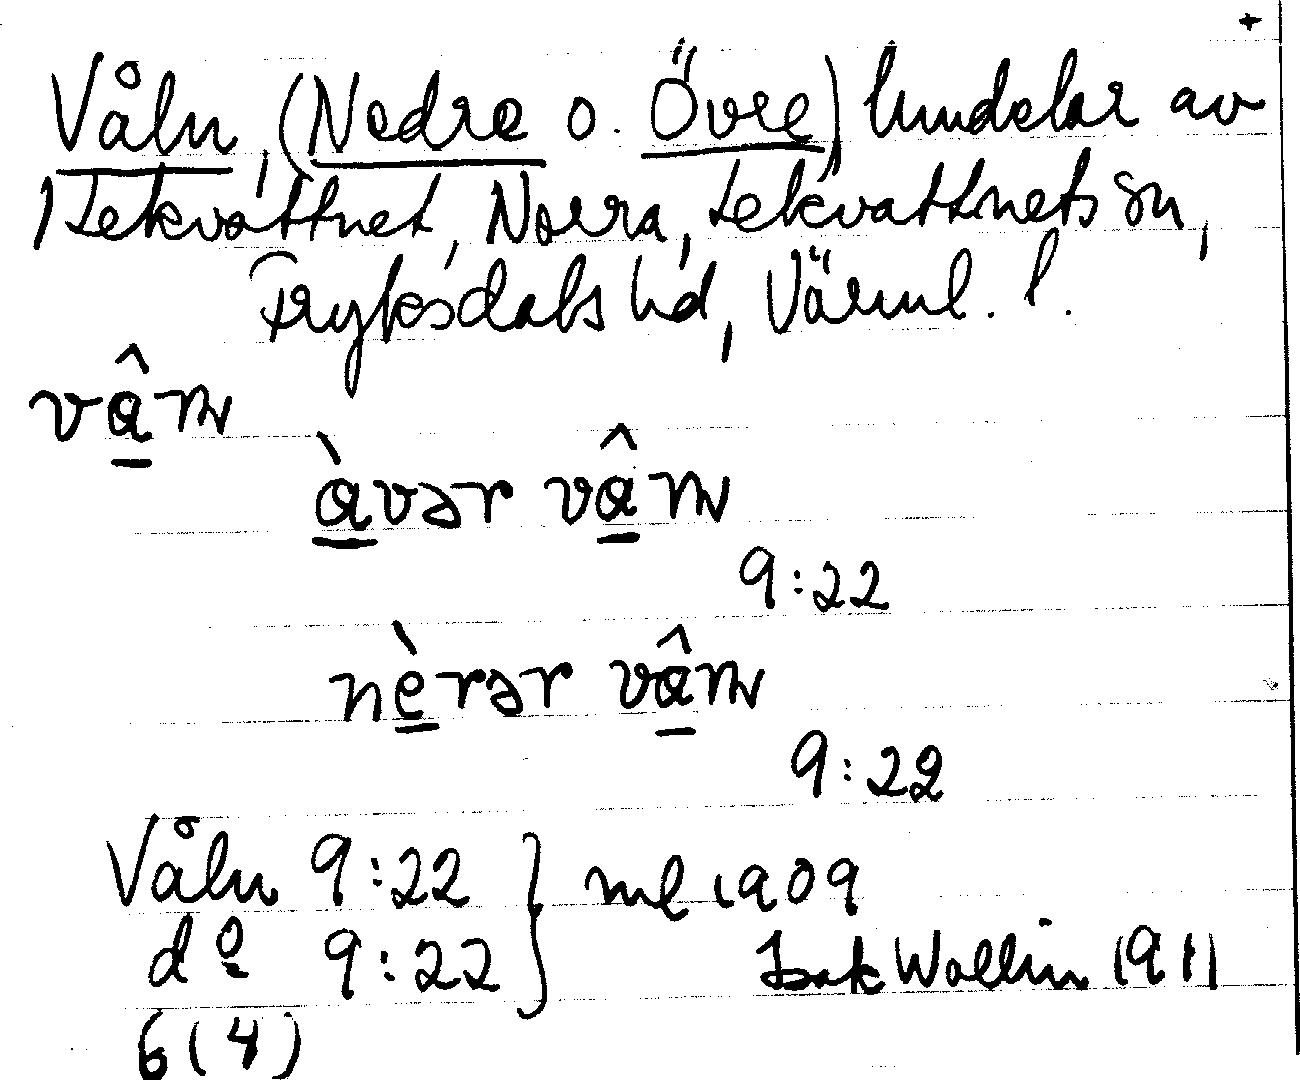 +
Våln, (Nedre o. Övre) lundelar av
Lekvattnet, Norra, Lekvattnets sn,
Fryksdals hd, Värml. l.
vâ̱m
à̱vər vâ̱m
9:22
nè̱rər vâ̱m
9:22
Våln 9:22 } ml 1909
dº 9:22
Isak Wallin 1911
6 (4)